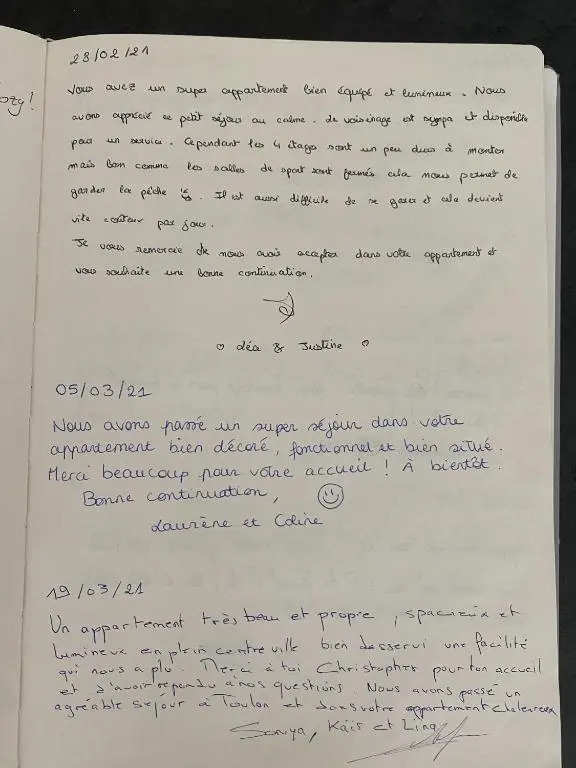 ozy!
28/02/21
Vous avez un super appartement bien équipé et lumineux. Nous
avons apprécié ce petit séjour au calme. Le voisinage est sympa et disponible
pour un service. Cependant les 4 étages sont un peu durs à monter
mais bon comme les salles de sport sont fermées cela nous permet de
garder la pêche. Il est aussi difficile de se garer et cela devient
vite couteux par jour.
Je vous remercie de nous avoir accepter dans votre appartement et
vous souhaite une bonne continuation.
Léa & Justine
05/03/21
Nous avons passé un super séjour dans votre
appartement bien décoré, fonctionnel et bien situé.
Merci beaucoup pour votre accueil ! À bientôt.
Bonne continuation,
Laurène et Coline
19/03/21
Un appartement très beau et propre, spacieux et
lumineux en plein centre ville bien desservi une facilité
qui nous a plu. Merci à toi Christopher pour ton accueil
et d'avoir répondu à nos questions. Nous avons passé un
agréable séjour à Toulon et dans votre appartement chaleureux
Sonya, Kaïs et Lina